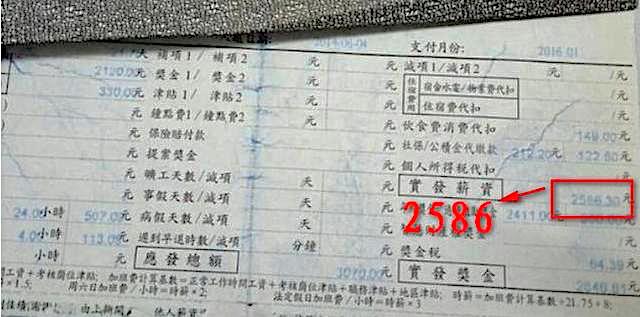 2014-06-04 支付月份: 2016-01
天 補項1/ 補項2 元 減項1/減項2 /元
2120.00元 獎金1/ 獎金2 元 住宿費用 宿舍水電/物業費代扣 /元
330.00元 津貼1/ 津貼2 元 住宿費代扣 /元
元 鐘點費1/鐘點費2 元 伙食費消費代扣 149.00元
元 保險賠付款 元 社保/公積金代繳款 212.20元 122.60元
元 提案獎金 元 個人所得稅代扣 元
元 曠工天數/減項 天 元 實發薪資 2586.30元
元 事假天數/減項 天 2411.00元
2586
24.00小時 507.00元 病假天數/減項 天 元
4.00小時 113.00元 遲到早退時數/減項 分鐘 元 獎金稅 64.39元
小時 元 應發總額 3070.00元 實發獎金 元
間工資+考核崗位津貼; 加班費計算基數=正常工作時間工資+考核崗位津貼+職務津貼+地區津貼; 時薪=加班費計算基數÷21.75÷8;
×1.5; 周六日加班費/小時=時薪×2; 法定假日加班費/小時=時薪×3